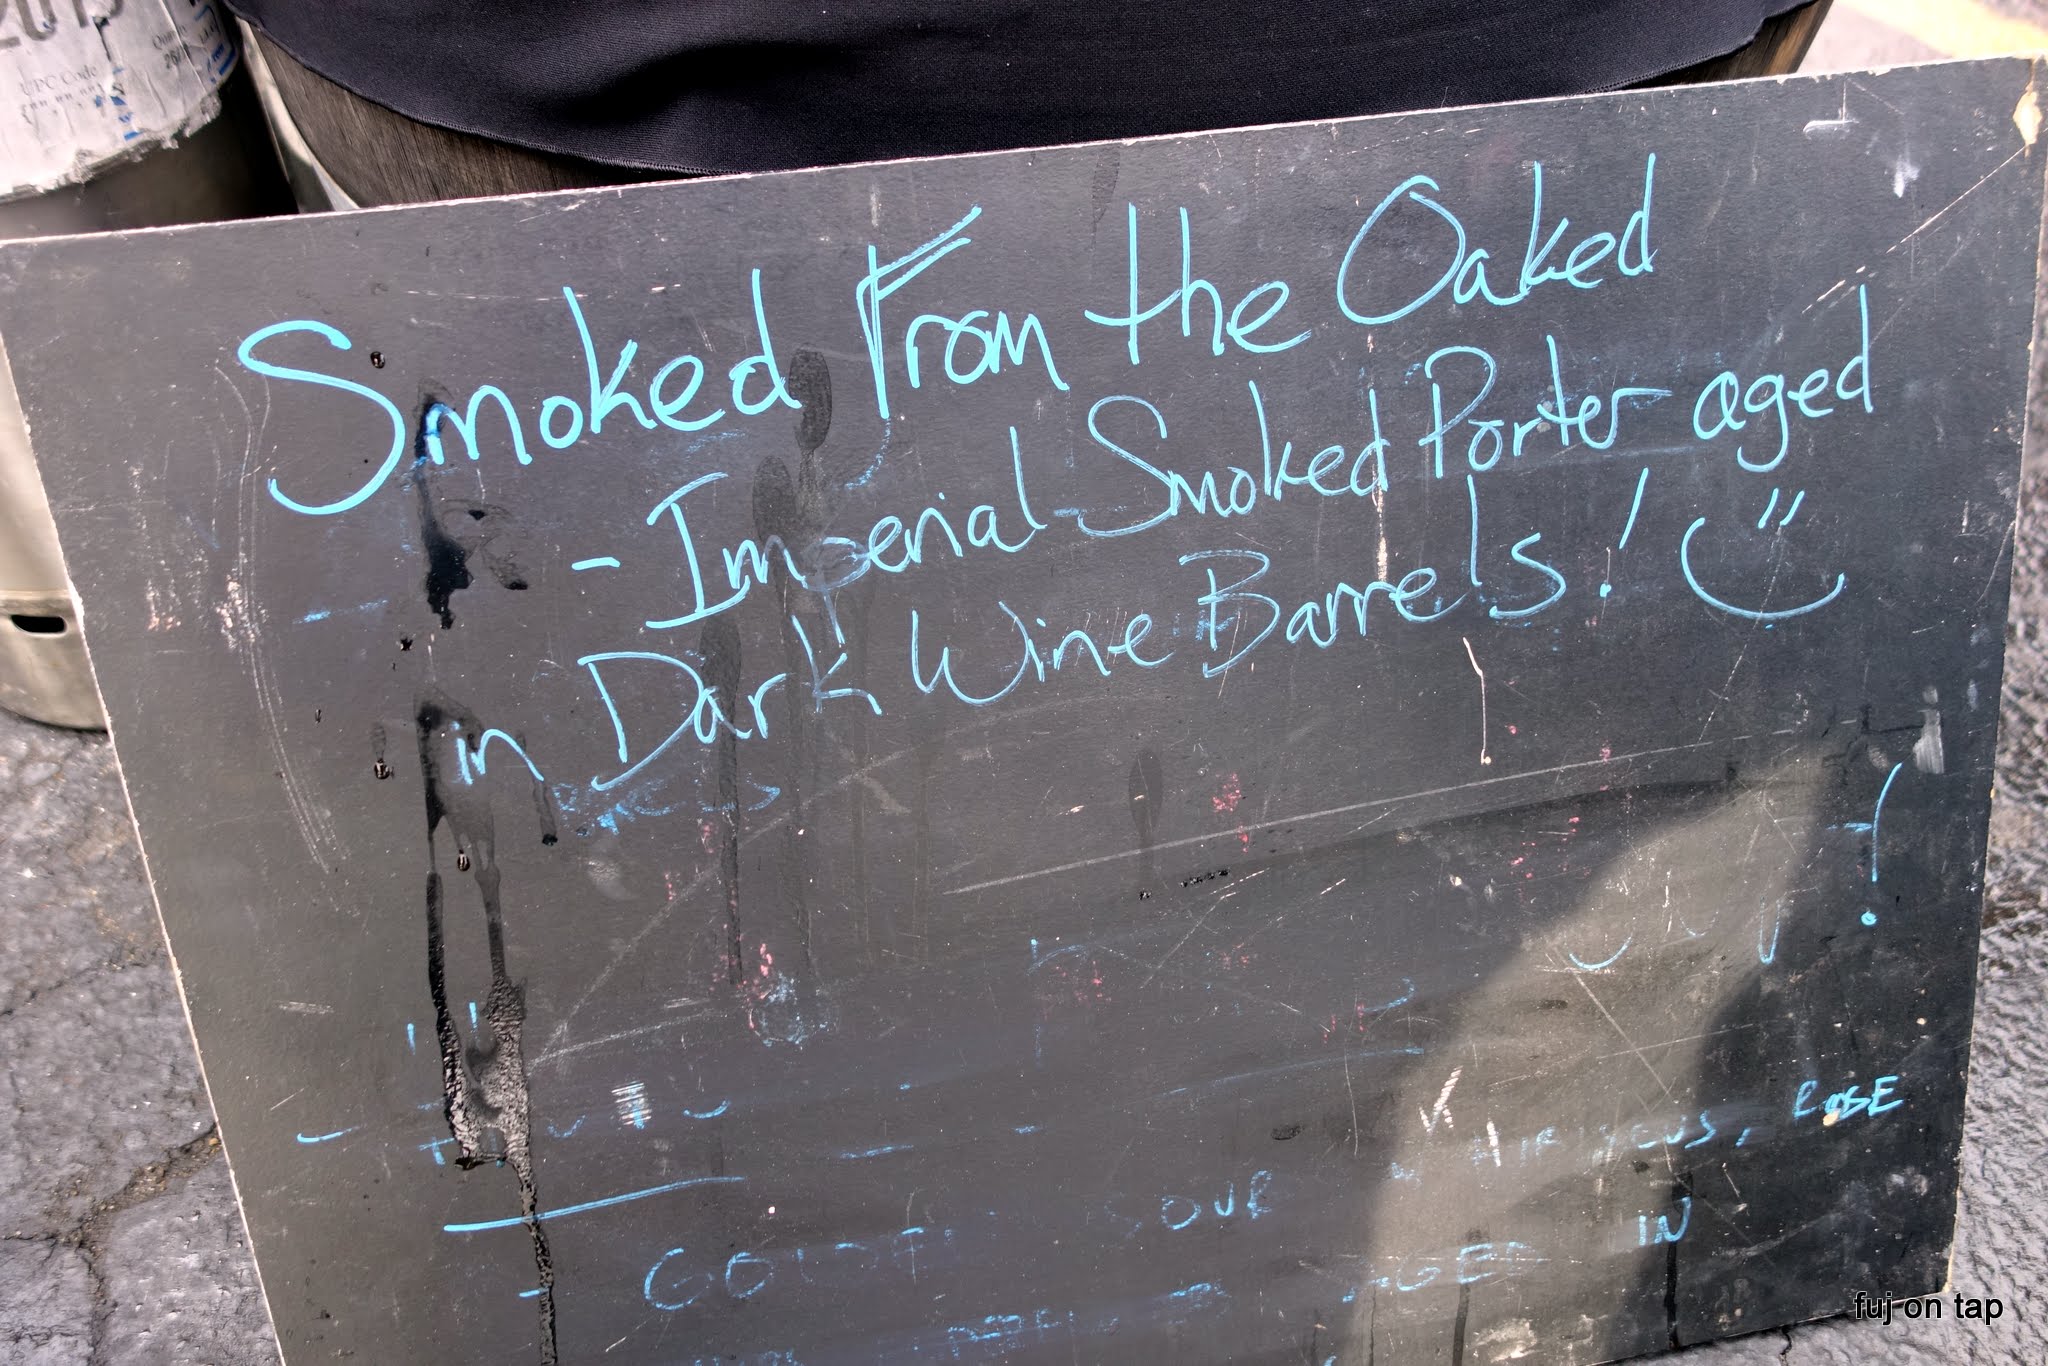 UPC Code
Smoked From the Oaked
- Imperial Smoked Porter aged
in Dark Wine Barrels!
HIBISCUS, ROSE
GOLDEN SOUR
AGED IN
fuj on tap